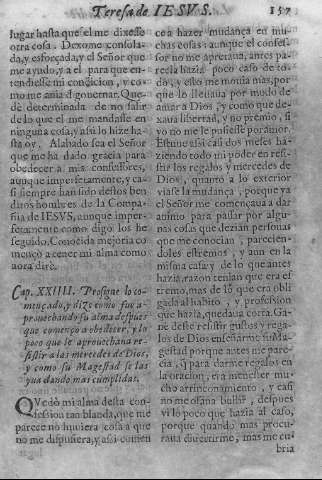 Teresa de IESVS. 157
lugar hasta que el me dixesse
otra cosa. Dexome consola-
da, y esforçada, y el Señor que
me ayudo, y a el para que en-
tendiesse mi condicion, y co-
mo me auia de gouernar. Que-
dè determinada de no salir
de lo que el me mandasse en
ninguna cosa, y assi lo hize has-
ta oy. Alabado sea el Señor
que me ha dado gracia para
obedecer a mis confessores,
aunque imperfetamente, y ca-
si siempre han sido destos ben-
ditos hombres de la Compa-
ñia de IESVS, aunque imper-
fetamente como digo los he
seguido. Conocida mejoria co-
menço a tener mi alma como
aora dirè.
Cap. XXIIII. Prosigue lo co-
mençado, y dize como fue a-
prouechando su alma despues
que començo a obedecer, y lo
poco que le aprouechaua re-
sistir a las mercedes de Dios,
y como su Magestad se las
yua dando mas cumplidas.
QVedò mi alma desta con-
fession tan blanda, que me
parece no huuiera cosa a que
no me dispusiera, y assi comen
ce a hazer mudança en mu-
chas cosas: aunque el confes-
sor no me apretaua, antes pa-
recia hazia poco caso de to-
do, y esto me mouia mas, por
que lo lleuaua por modo de
amar a Dios, y como que de-
xaua libertad, y no premio, si
yo no me le pusiesse por amor.
Estuue assi casi dos meses ha-
ziendo todo mi poder en resis-
tir los regalos y mercedes de
Dios, quanto a lo exterior
viasse la mudança, porque ya
el Señor me començaua a dar
animo para passar por algu-
nas cosas que dezian personas
que me conocian, parecien-
doles estremos, y aun en la
misma casa; y de lo que antes
hazia, razon tenian que era es-
tremo, mas de lo que era obli
gada al habito, y profession
que hazia, quedaua corta. Ga-
nè deste resistir gustos y rega-
los de Dios enseñarme su Ma-
gestad porque antes me pare-
cia, q̃ para darme regalos en
la oracion, era menester mu-
cho arrinconamiento, y casi
no me osaua bullir, despues
vi lo poco que hazia al caso,
porque quando mas procu-
raua diuertirme, mas me cu-
bria